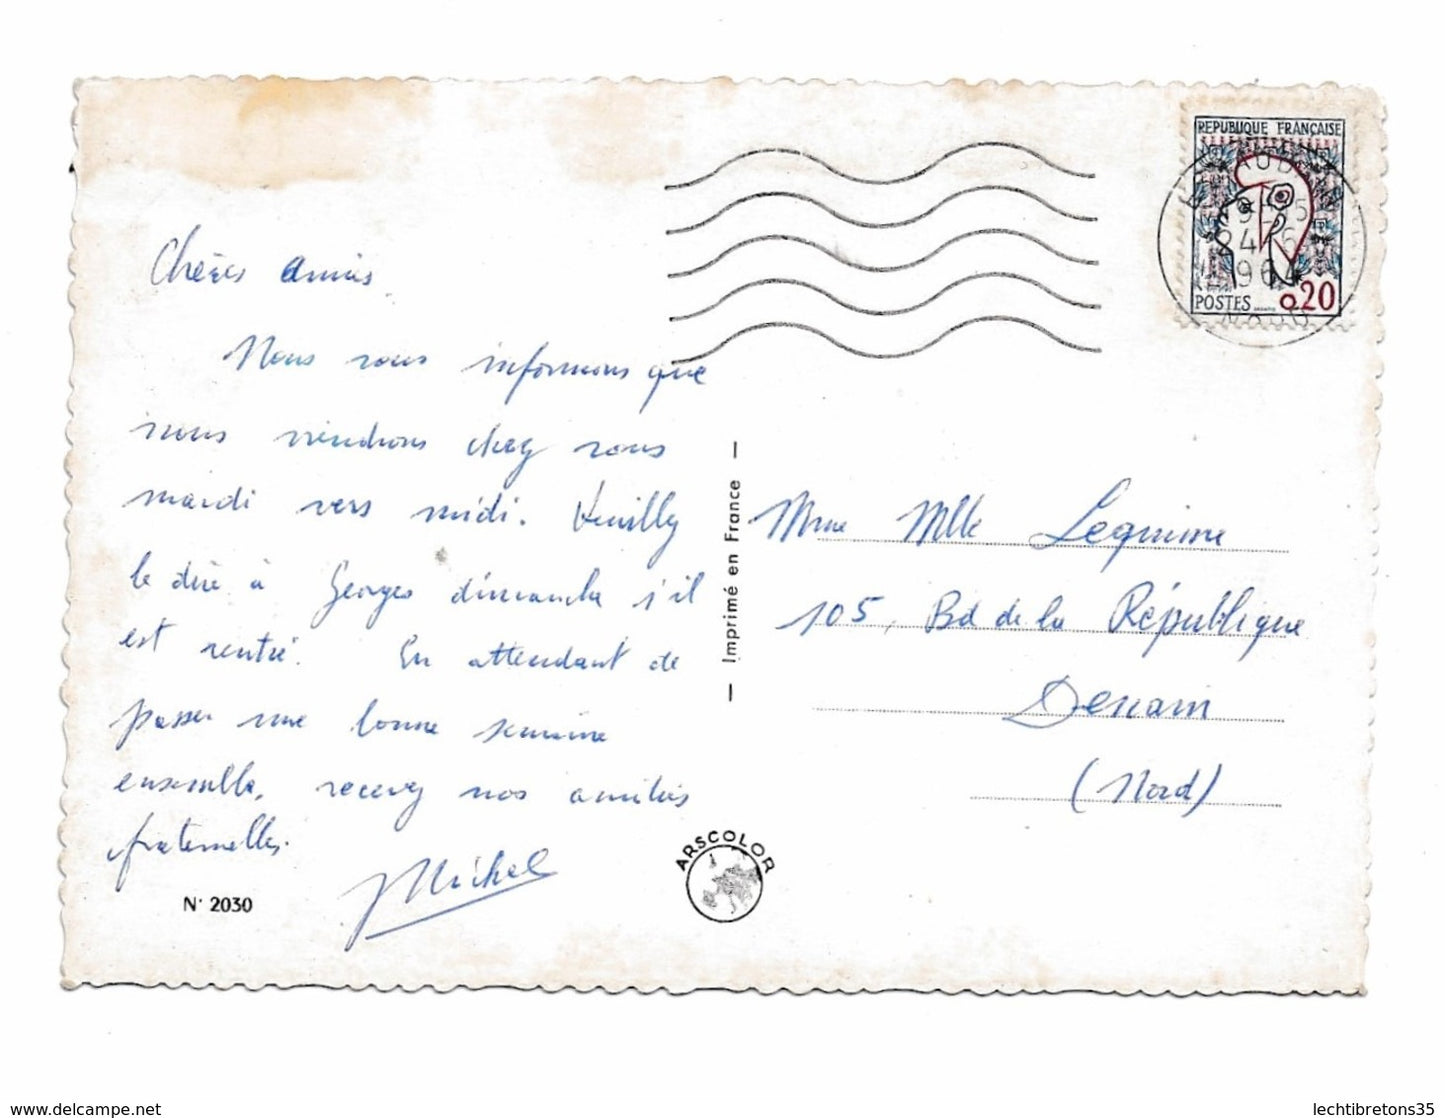 Chères amies.
Nous vous informons que
nous viendrons chez vous
mardi vers midi. Veuillez
le dire à Georges dimanche s'il
est rentré. En attendant de
passer une bonne semaine
ensemble, recevez nos amitiés
fraternelles.
Michel
N° 2030
— Imprimé en France —
ARSCOLOR
REPUBLIQUE FRANÇAISE
POSTES 0,20
24-6
1964
NORD
Mme Mlle Lequime
105, Bd de la République
Denain
(Nord)
http://delcampe.net
lechtibretons35